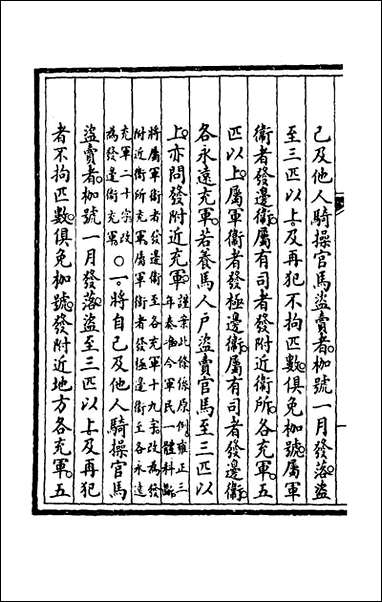 己及他人騎操官馬盜賣者。枷號一月發落。盜
至三匹以上。及再犯不拘匹數。俱免枷號。屬軍
衛者發邊衛。屬有司者發附近衛所。各充軍。五
匹以上。屬軍衛者發極邊衛。屬有司者發邊衛。
各永遠充軍。若養馬人戶盜賣官馬至三匹以
上。亦問發附近充軍。
謹案此條係原例。雍正三
年奏准今軍民一體科斷。
將屬軍衛者發邊衛至各充軍十九字。改為發
附近衛所充軍。屬軍衛者發極邊衛至各永遠
充軍二十字。改
為發邊衛充軍。
○一。將自己及他人騎操官馬
盜賣者。枷號一月發落。盜至三匹以上。及再犯
者不拘匹數。俱免枷號。發附近地方各充軍。五